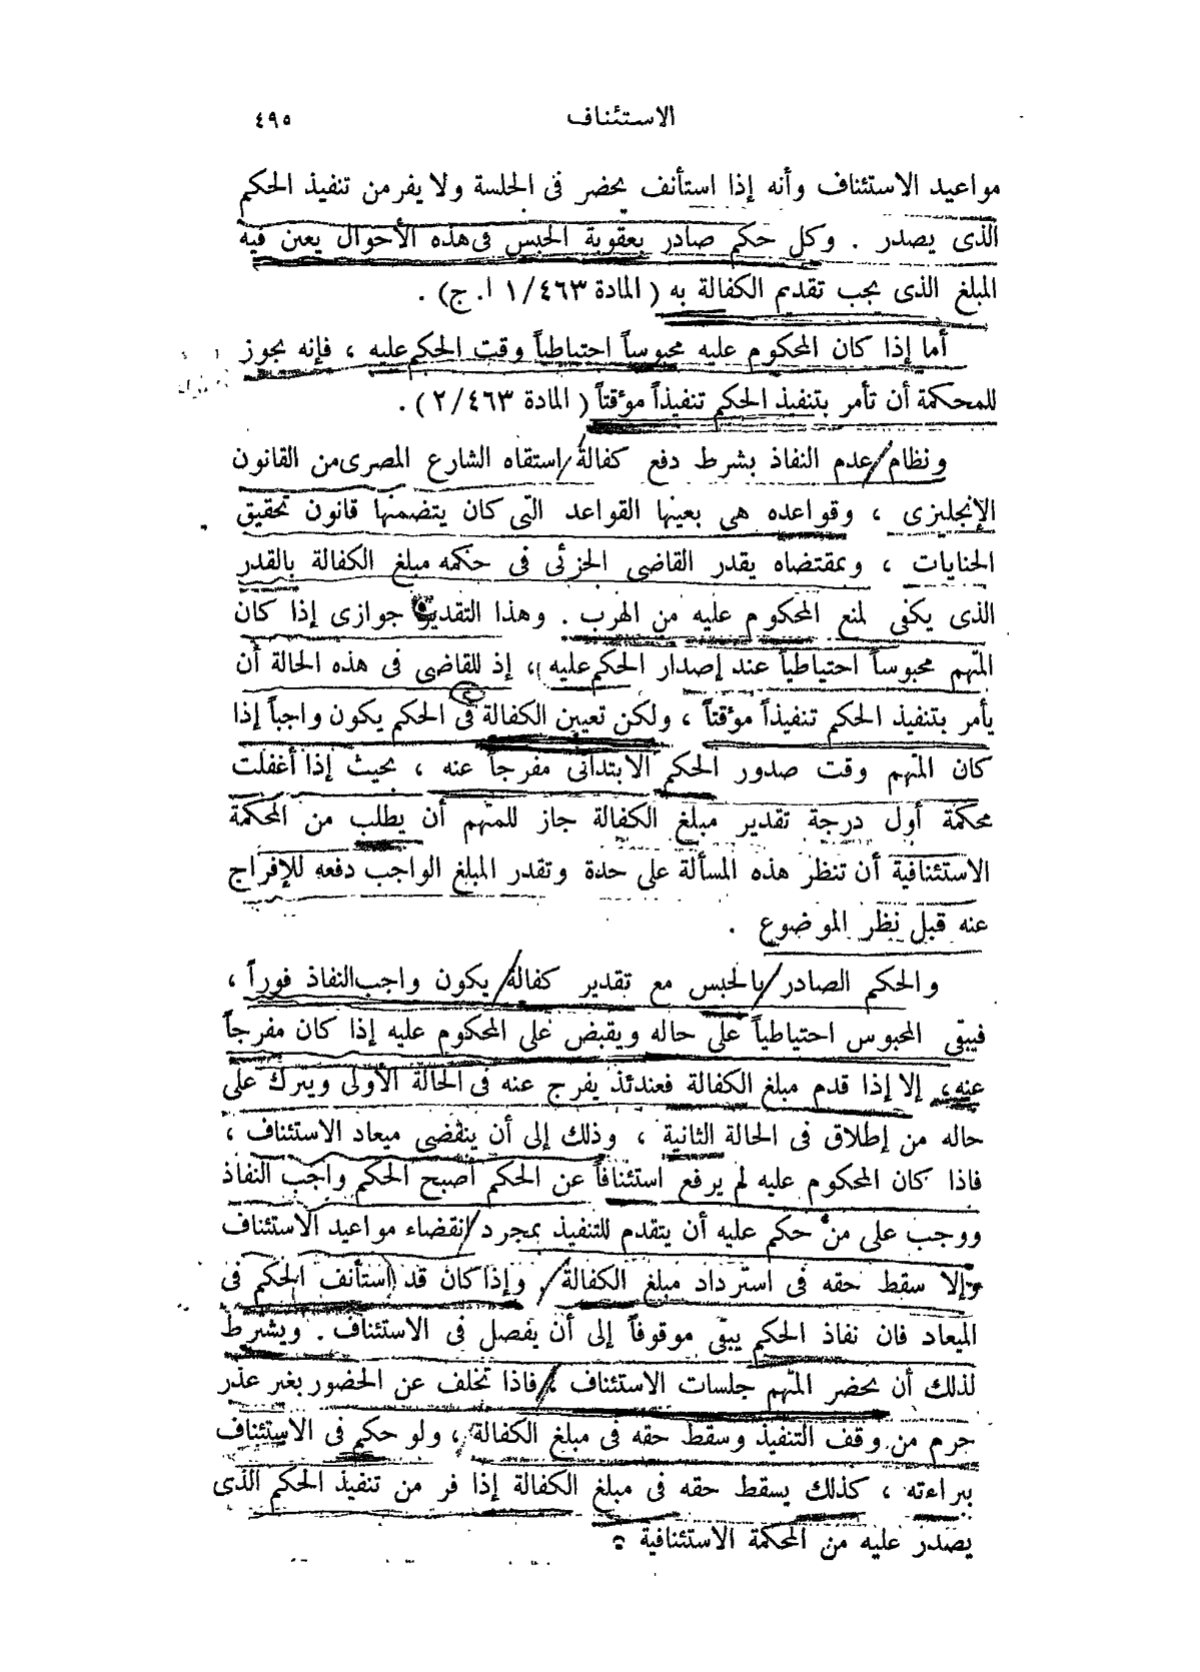 الاستئناف ٤٩٥
مواعيد الاستئناف وأنه إذا استأنف يحضر فى الجلسة ولا يفر من تنفيذ الحكم
الذى يصدر . وكل حكم صادر بعقوبة الحبس فى هذه الأحوال يعين فيه
المبلغ الذى يجب تقديم الكفالة به ( المادة ١/٤٦٣ ا. ج) .
أما إذا كان المحكوم عليه محبوساً احتياطياً وقت الحكم عليه ، فإنه يجوز
للمحكمة أن تأمر بتنفيذ الحكم تنفيذاً مؤقتاً ( المادة ٢/٤٦٣ ) .
ونظام عدم النفاذ بشرط دفع كفالة استقاه الشارع المصرى من القانون
الإنجليزى ، وقواعده هى بعينها القواعد التى كان يتضمنها قانون تحقيق
الجنايات ، وبمقتضاه يقدر القاضى الجزئى فى حكمه مبلغ الكفالة بالقدر
الذى يكفى لمنع المحكوم عليه من الهرب . وهذا التقدير جوازى إذا كان
المتهم محبوساً احتياطياً عند إصدار الحكم عليه ، إذ للقاضى فى هذه الحالة أن
يأمر بتنفيذ الحكم تنفيذاً مؤقتاً ، ولكن تعيين الكفالة فى الحكم يكون واجباً إذا
كان المتهم وقت صدور الحكم الابتدائى مفرجاً عنه ، بحيث إذا أغفلت
محكمة أول درجة تقدير مبلغ الكفالة جاز للمتهم أن يطلب من المحكمة
الاستئنافية أن تنظر هذه المسألة على حدة وتقدر المبلغ الواجب دفعه للإفراج
عنه قبل نظر الموضوع .
والحكم الصادر بالحبس مع تقدير كفالة يكون واجب النفاذ فوراً ،
فيبقى المحبوس احتياطياً على حاله ويقبض على المحكوم عليه إذا كان مفرجاً
عنه ، إلا إذا قدم مبلغ الكفالة فعندئذ يفرج عنه فى الحالة الأولى ويترك على
حاله من إطلاق فى الحالة الثانية ، وذلك إلى أن ينقضى ميعاد الاستئناف ،
فاذا كان المحكوم عليه لم يرفع استئنافاً عن الحكم أصبح الحكم واجب النفاذ
ووجب على من حكم عليه أن يتقدم للتنفيذ بمجرد انقضاء مواعيد الاستئناف
وإلا سقط حقه فى استرداد مبلغ الكفالة ، وإذا كان قد استأنف الحكم فى
الميعاد فان نفاذ الحكم يبقى موقوفاً إلى أن يفصل فى الاستئناف . ويشترط
لذلك أن يحضر المتهم جلسات الاستئناف ، فاذا تخلف عن الحضور بغير عذر
جرم من وقف التنفيذ وسقط حقه فى مبلغ الكفالة ، ولو حكم فى الاستئناف
ببراءته ، كذلك يسقط حقه فى مبلغ الكفالة إذا فر من تنفيذ الحكم الذى
يصدر عليه من المحكمة الاستئنافية .